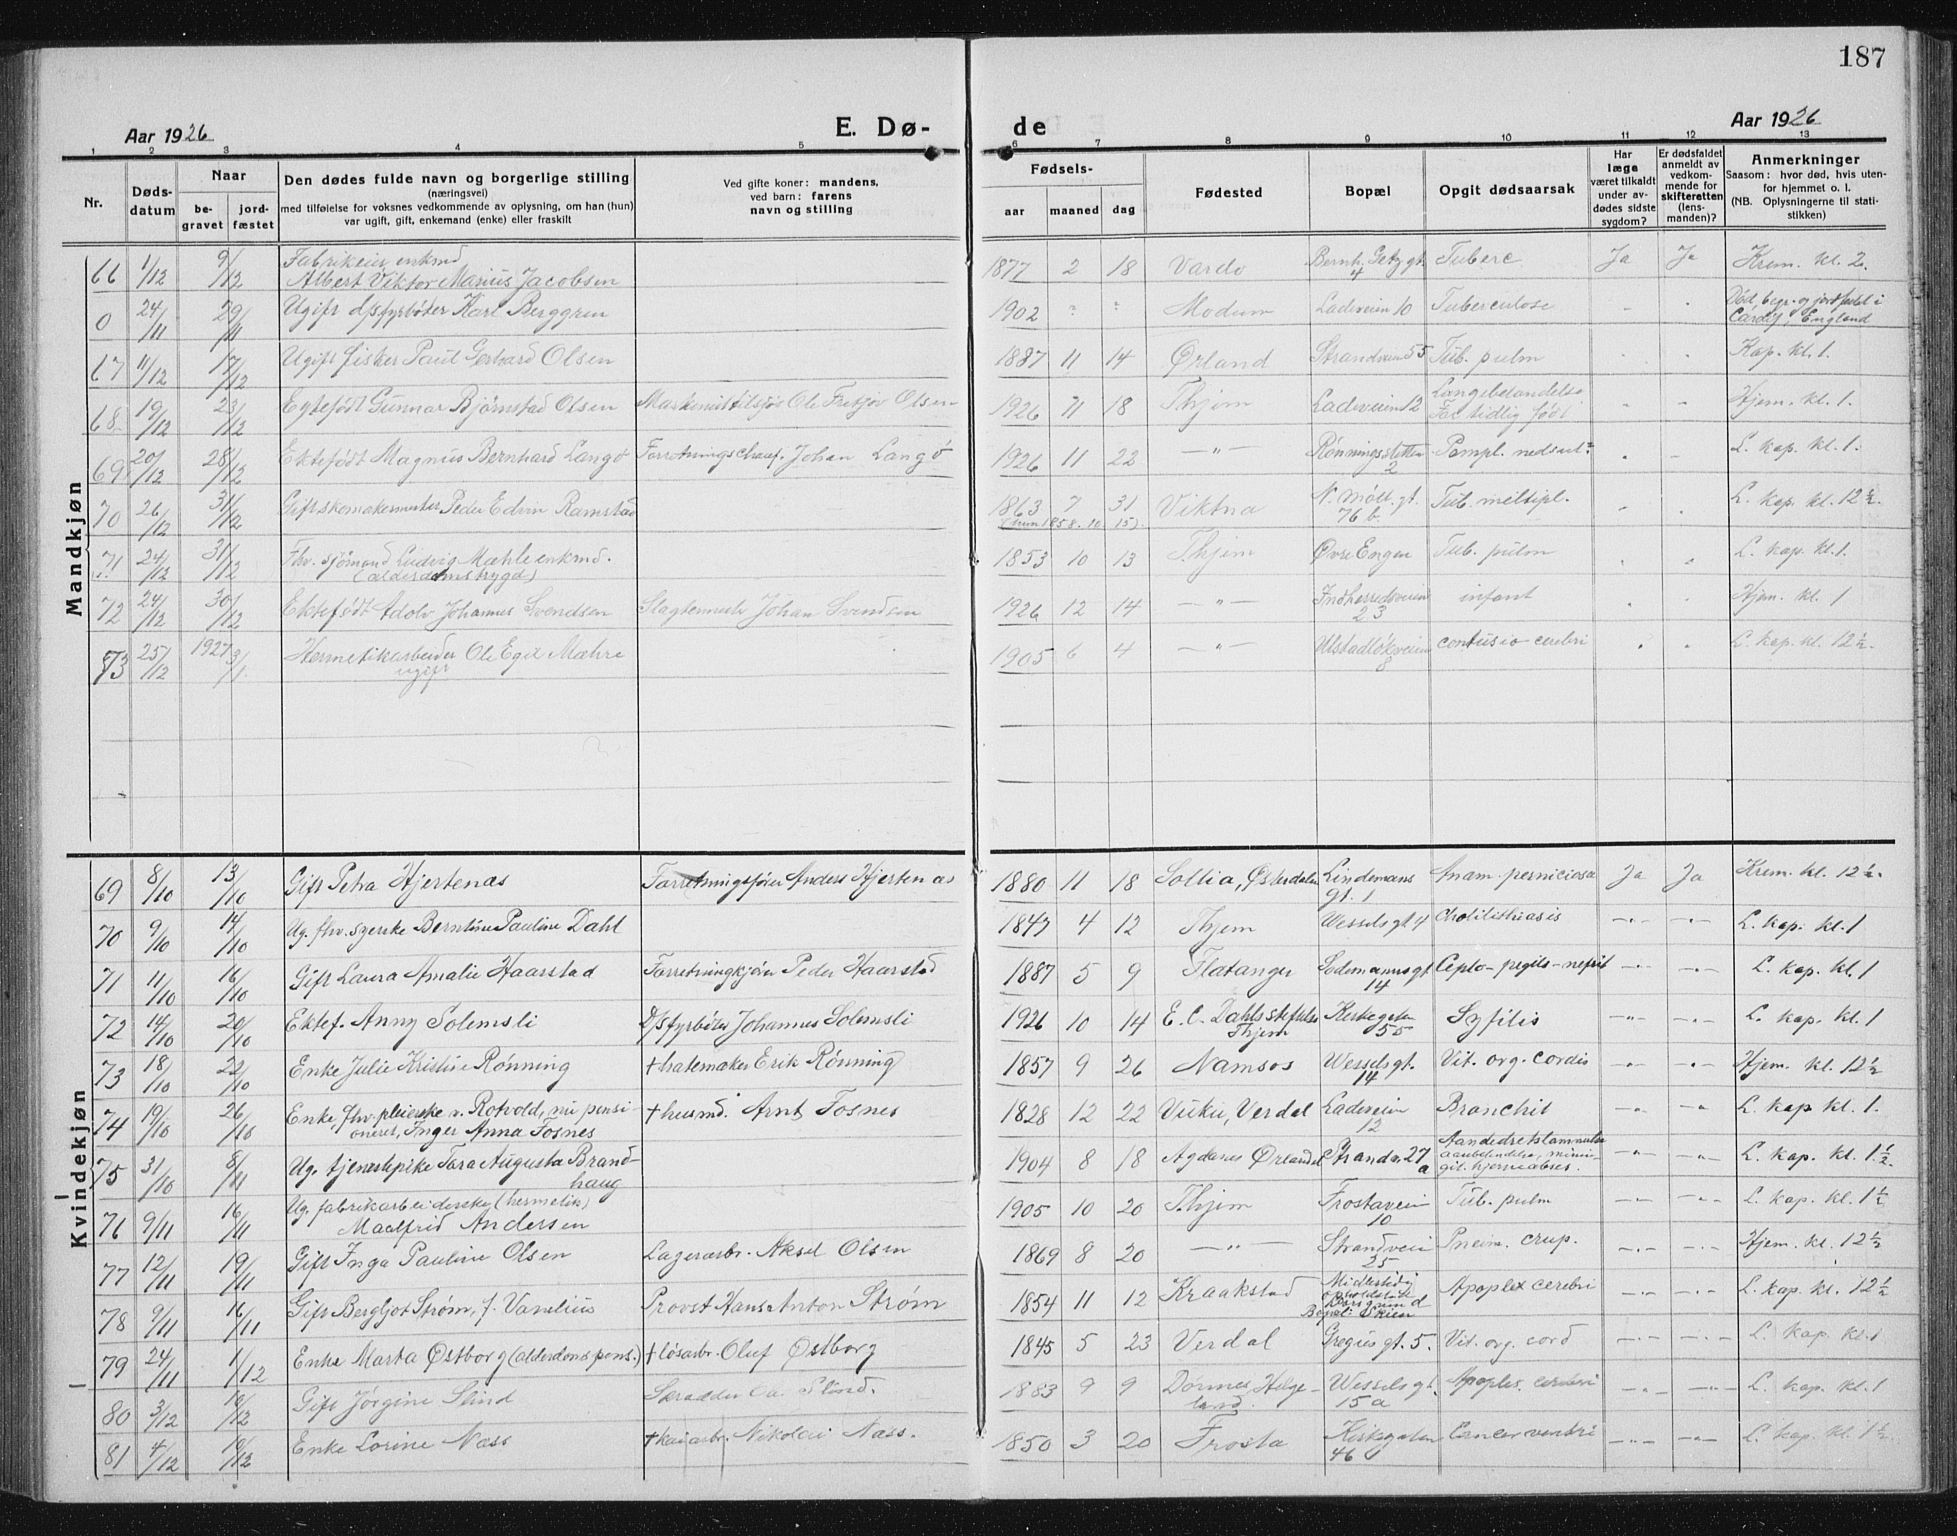 187
Aar 1926
E. Dø-
de
Aar 1926
1 2 3 4 5 6 7 8 9 10 11 12 13
Nr.
Døds-
datum
Naar
be-
gravet
jord-
fæstet
Den dødes fulde navn og borgerlige stilling
(næringsvei)
med tilføielse for voksnes vedkommende av oplysning, om han (hun)
var ugift, gift, enkemand (enke) eller fraskilt
Ved gifte koner: mandens,
ved barn: farens
navn og stilling
Fødsels-
aar
maaned
dag
Fødested
Bopæl
Opgit dødsaarsak
Har
læge
været tilkaldt
under av-
dødes sidste
sygdom?
Er dødsfaldet
anmeldt av
vedkom-
mende for
skifteretten
(lens-
manden)?
Anmerkninger
Saasom: hvor død, hvis uten-
for hjemmet o. l.
(NB. Oplysningerne til stati-
stikken)
Mandkjøn
66 1/12 9/12 Fabrikeier, enkmd Albert Viktor Marius Jacobsen 1877 2 18 Vardø Bernh. Getz gt. 4 Tuberc Ja Ja Krem. kl. 2.
0 24/11 29/11 Ugift d/sfyrbøter Karl Berggren 1902 " " Modum Ladeveien 10 Tuberculose " " Død, begr. og jordfæstet i Cardif, England
67 11/12 17/12 Ugift fisker Paul Gerhard Olsen 1887 11 14 Ørland Strandveien 55 Tub. pulm " " Kap. kl. 1.
68 19/12 23/12 Egtefødt Gunnar Bjørnstad Olsen Ole Fretjov Olsen 1926 11 18 Thjem Ladeveien 12 For tidlig født " " Hjem. kl. 1.
69 20/12 28/12 Ektefødt Magnus Bernhard Langø Forretningschauf. Johan Langø 1926 11 22 —"— 2 " " L. kap. kl. 1.
70 26/12 31/12 Gift skomakermester Peder Edvin Ramstad 1863 7 31 (hun 1858. 10. 15). Viktna N. Møll. gt. 76 b. Tub. multipl. " " L. kap. kl. 12 ½.
71 24/12 31/12 Fhv. sjømand Ludvig Mæhle enkmd. 1853 10 13 Thjem Øvre Engen Tub. pulm " " L. kap. kl. 1.
72 24/12 30/12 Ektefødt Adolv Johannes Svendsen Slagtermester Johan Svendsen 1926 12 14 —"— Indherredsveien 23 infant " " Hjem. kl. 1
73 25/12 1927 3/1 Hermetikarbeider Ole Egil Mæhre ugift 1905 6 4 —"— Ulstadløkveien 8 contusio cerebri " " L. kap. kl. 12 ½.
Kvindekjøn
69 8/10 13/10 Gift Petra Hjertenæs Forretningsfører Anders Hjertenæs 1880 11 18 Sollia, Østerdalen Lindemans gt. 1 Anæm. perniciosa Ja Ja Krem. kl. 12 ½.
70 9/10 14/10 Ug. fhv. syerske Berntine Pauline Dahl 1843 4 12 Thjem Wessels gt 4 Cholilithiasis —"— —"— L. kap. kl. 1
71 11/10 16/10 Gift Laura Amalie Haarstad Peder Haarstad 1887 5 9 Flatanger Sodemannsgt 14 —"— —"— L. kap. kl. 1
72 14/10 20/10 Ektef. Anny Solemsli D/S fyrbøter Johannes Solemsli 1926 10 14 E. C. Dahls stiftelse Thjem Kirkegaten 55 Syfilis —"— —"— L. kap. kl. 1
73 18/10 22/10 Enke Julie Kristine Rønning + hatemaker Erik Rønning 1857 9 26 Namsos Wessels gt. 14 Vit. org. cordis —"— —"— Hjem. kl. 12 ½
74 19/10 26/10 Enke, fhv. pleierske v. Rotvold, nu pensi- oneret, Inger Anna Fosnes + husmd. Arnt Fosnes 1828 12 22 Vuku, Verdal Ladeveien 12 Bronchit —"— —"— L. kap kl. 1.
75 31/10 8/11 Ug. tjenestepike Tora Augusta Brand- haug 1904 8 18 Agdenes Ørlandet Strandv. 27 a —"— —"— L. kap. kl. 1 ½.
76 9/11 16/11 Ug. fabrikarbeiderske (hermetik) Maalfrid Andersen 1905 10 20 Thjem Frostaveien 10 Tub. pulm —"— —"— L. kap. kl. 1 ½
77 12/11 19/11 Gift Inga Pauline Olsen Lagerarbr. Aksel Olsen 1869 8 20 —"— Strandvei 25 Pneum. crup. —"— —"— Hjem. kl. 12 ½
78 9/11 16/11 Gift Bergljot Strøm, f. Vanelius Provst Hans Anton Strøm 1854 11 12 Kraakstad Midlertidig opholdssted Porsgrund Bopæl: Skien Apoplex cerebri —"— —"— L. kap. kl. 12 ½
79 24/11 1/12 Enke Marta Østborg (alderdoms pens.) + løsarbr. Oluf Østborg 1845 5 23 Verdal Gregus gt. 5. Vit. org. cord —"— —"— L. kap. kl. 1
80 3/12 10/12 Gift Jørgine Slind Skrædder Slind. 1883 9 9 Dønnes, Helge- land. Wessels gt. 15 a Apoplex. cerebri —"— —"— L. kap. kl. 1
81 4/12 10/12 Enke Lorine Næss + kaiarbr. Nikolai Næss. 1850 3 20 Frosta Kirkegaten 46 Cancer ventri —"— —"— L. kap. kl. 1 ½.